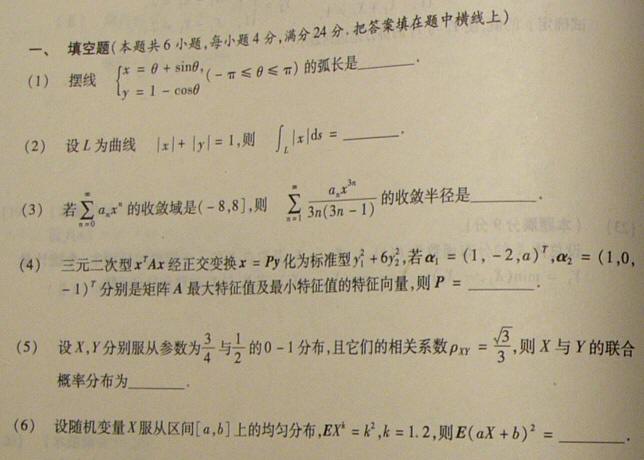 一、 填空题(本题共6小题,每小题4分,满分24分.把答案填在题中横线上)
(1) 摆线 {x = θ + sinθ, y = 1 - cosθ (-π ≤ θ ≤ π) 的弧长是______.
(2) 设L为曲线 |x| + |y| = 1,则 ∫_L |x|ds = ______.
(3) 若 ∑_{n=0}^{∞} a_n x^n 的收敛域是(-8,8],则 ∑_{n=1}^{∞} a_n x^{3n} / 3n(3n - 1) 的收敛半径是______.
(4) 三元二次型 x^T Ax 经正交变换 x = Py 化为标准型 y_1^2 + 6y_2^2,若 α_1 = (1, -2,a)^T,α_2 = (1,0,
-1)^T 分别是矩阵 A 最大特征值及最小特征值的特征向量,则 P = ______.
(5) 设 X,Y 分别服从参数为 3/4 与 1/2 的 0-1 分布,且它们的相关系数 ρ_{XY} = √3/3,则 X 与 Y 的联合
概率分布为______.
(6) 设随机变量 X 服从区间[a,b]上的均匀分布,EX^k = k^2,k = 1.2,则 E(aX + b)^2 = ______.